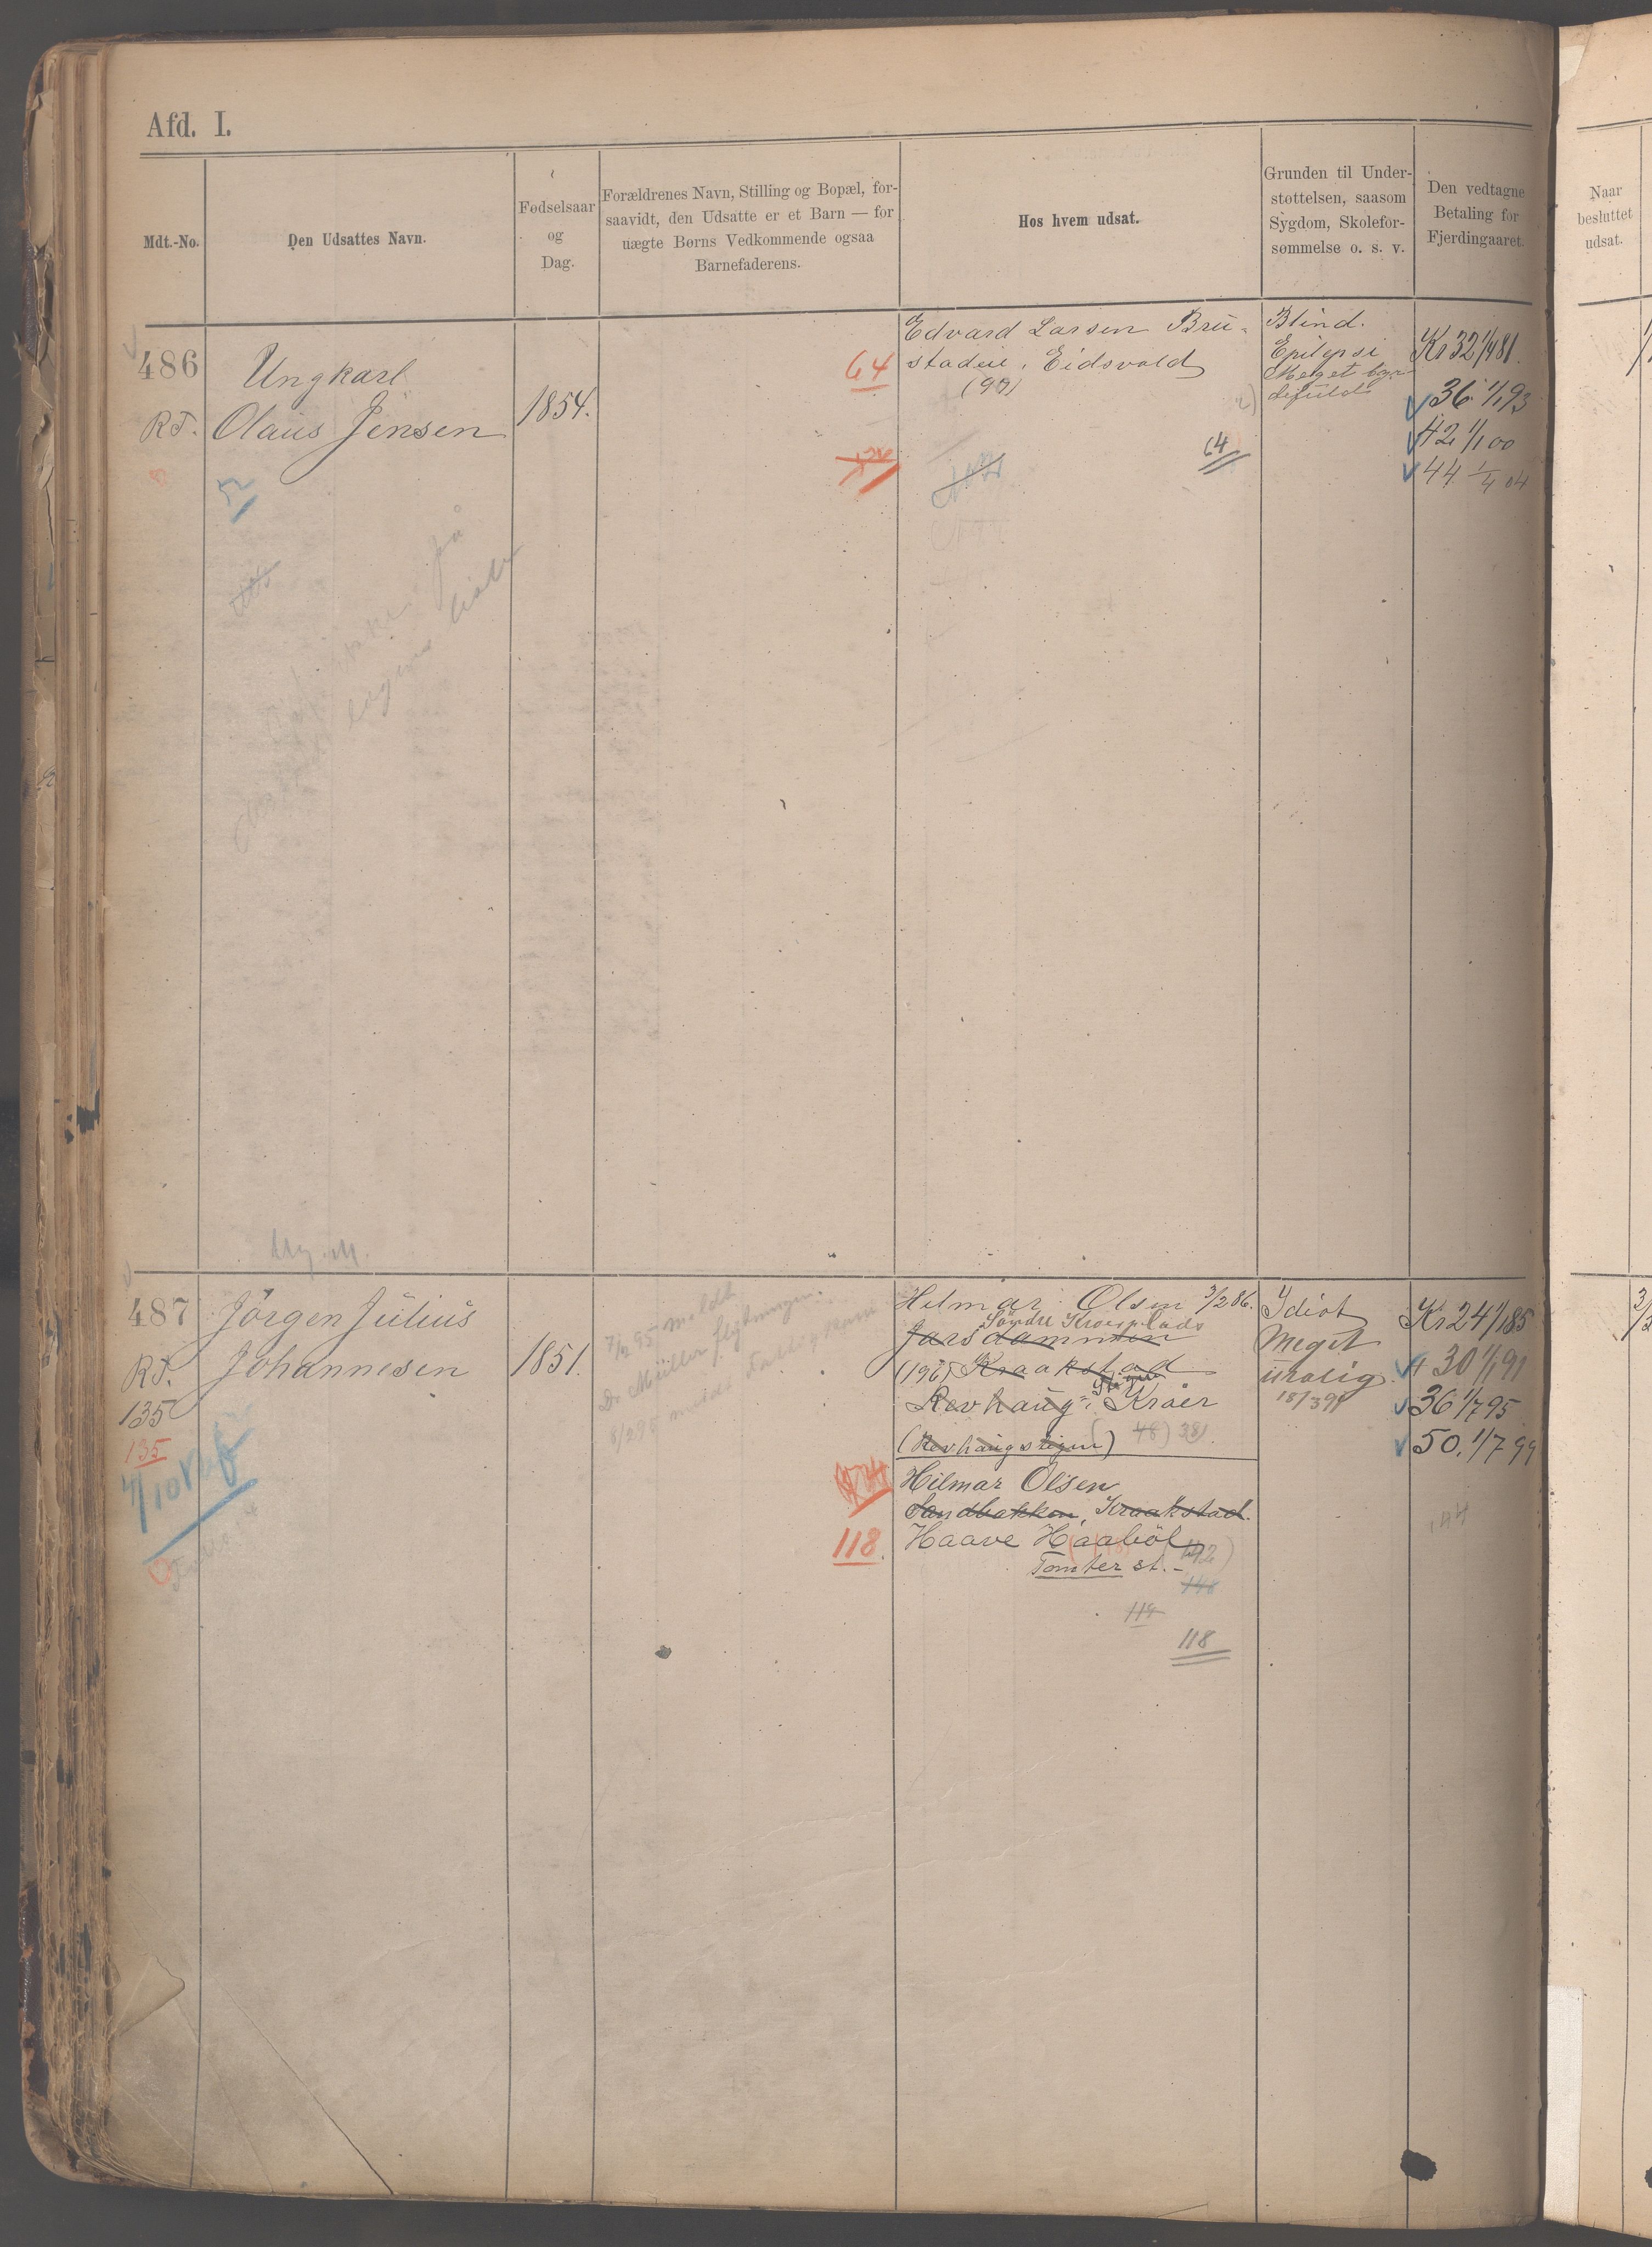 Afd. I.
Mdt.-No.
Den Udsattes Navn.
Fødselsaar
og
Dag.
Forældrenes Navn, Stilling og Bopæl, for-
saavidt, den Udsatte er et Barn — for
uægte Børns Vedkommende ogsaa
Barnefaderens.
Hos hvem udsat.
Grunden til Under-
støttelsen, saasom
Sygdom, Skolefor-
sømmelse o. s. v.
Den vedtagne
Betaling for
Fjerdingaaret.
Naar
besluttet
udsat.
486
RT.
Ungkarl
Olaus Jensen
1854.
64
Edvard Larsen Bru-
stadeie, Eidsvold
64
Blind.
Epilepsi
Meget
Kr 32 1/4 81.
36 1/1 93
42 1/1 00
44 1/4 04
487
RT.
135
135
Jörgen Julius
Johannesen
1851.
7/12 95 meldt
Dr Müller flytningen.
Hilmar Olsen 3/2 86.
Söndre Kroersplads
Jarsdammen
(196) Kraakstad
Revhaug i Kroer
(Revhaugstigen) (48) 38.
Hilmar Olsen
Sandbakken, Kraakstad.
118.
Haave Haaböl
Tomter st.
148
119
118
Idiot
Meget
urolig
18/3 91
Kr 24 1/1 85
30 1/1 91
36 1/7 95
50. 1/7 99
144